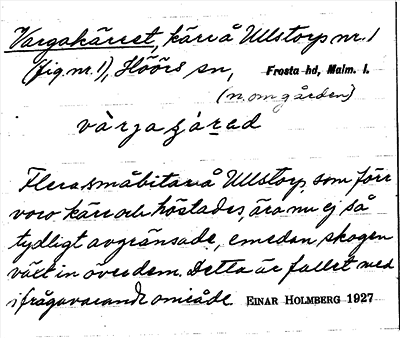 Vargakärret, kärr å Ullstorp nr. 1
(fig. nr. 1), Höörs sn, Frosta hd, Malm. l.
(n. om gården)
värga ʒárad
Flera småbitar å Ullstorp, som förr
voro kärr och höstades, ära nu ej så
tydligt avgränsade, emedan skogen
växt in över dem. Detta är fallet med
ifrågavarande område. EINAR HOLMBERG 1927